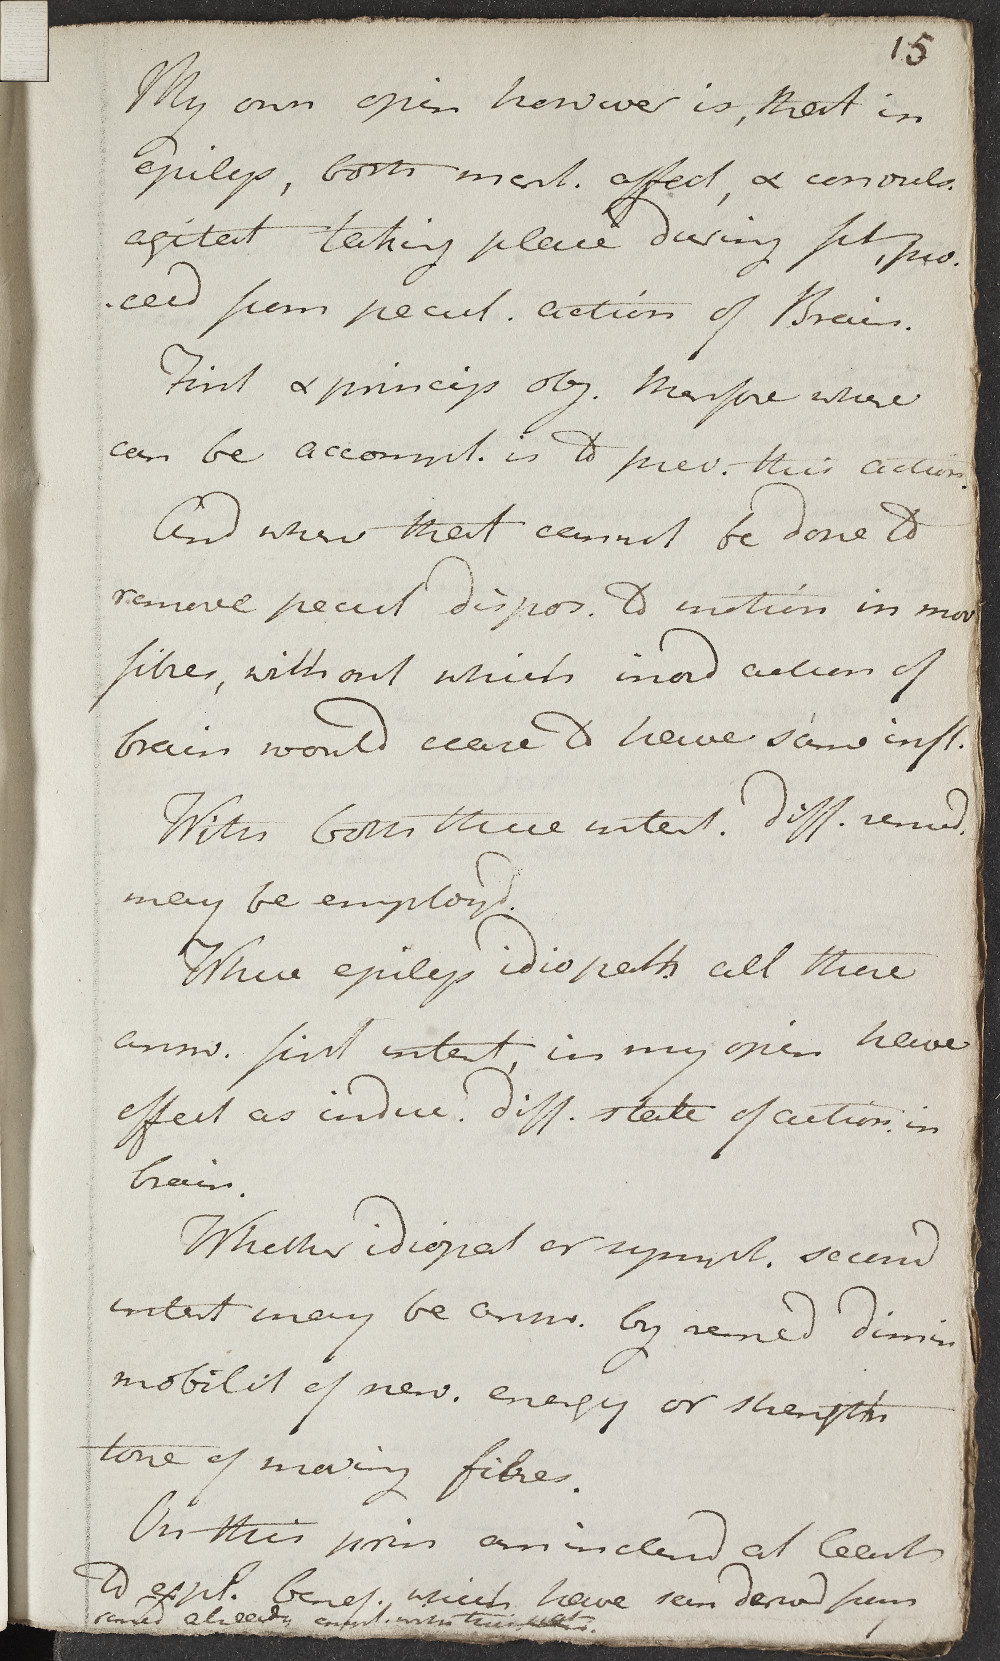 15
My own opin however is, that in
epileps, both ment. affect, & convuls.
agitat taking place during fit, pro.
.ceed from pecul. action of Brain.
First & princip obj. therefore where
can be accompl. is to prev. this action.
And where that cannot be done to
remove pecul dispos. to motion in mov
fibres, without which inord action of
brain would cease to have same infl.
With both these intent. diff. remed.
may be employd.
Where epileps idiopath all these
answ. first intent, in my opin have
effect as induc. diff. state of action in
brain.
Whether idiopat or sympt. second
intent may be answ. by remed dimin
mobilit of nerv. energy or strength
tone of moving fibres.
On this prin am inclend at least
to expl. benef. which have seen derivd from
remed already empl. with this